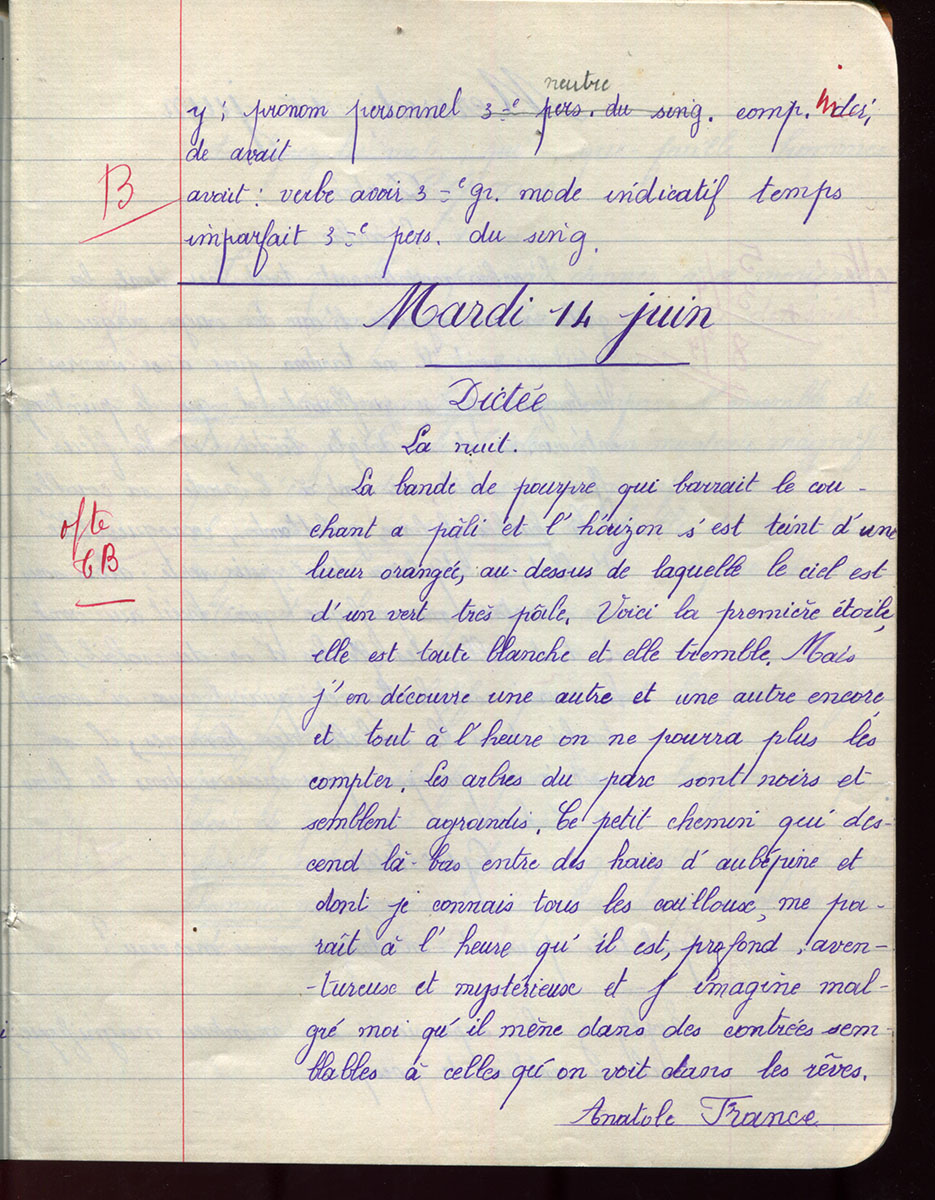 neutre
y : pronom personnel 3e pers. du sing. comp. indir.
de avait
B
avait : verbe avoir 3e gr. mode indicatif temps
imparfait 3e pers. du sing.
Mardi 14 juin
Dictée
La nuit.
La bande de pourpre qui barrait le cou-
ofte
TB
chant a pâli et l'horizon s'est teint d'une
lueur orangée, au-dessus de laquelle le ciel est
d'un vert très pâle. Voici la première étoile,
elle est toute blanche et elle tremble. Mais
j'en découvre une autre et une autre encore,
et tout à l'heure on ne pourra plus les
compter. Les arbres du parc sont noirs et
semblent agrandis. Ce petit chemin qui des-
cend là-bas entre des haies d'aubépine et
dont je connais tous les cailloux, me pa-
raît à l'heure qu'il est, profond, aven-
-tureux et mystérieux et j'imagine mal-
gré moi qu'il mène dans des contrées sem-
blables à celles qu'on voit dans les rêves.
Anatole France